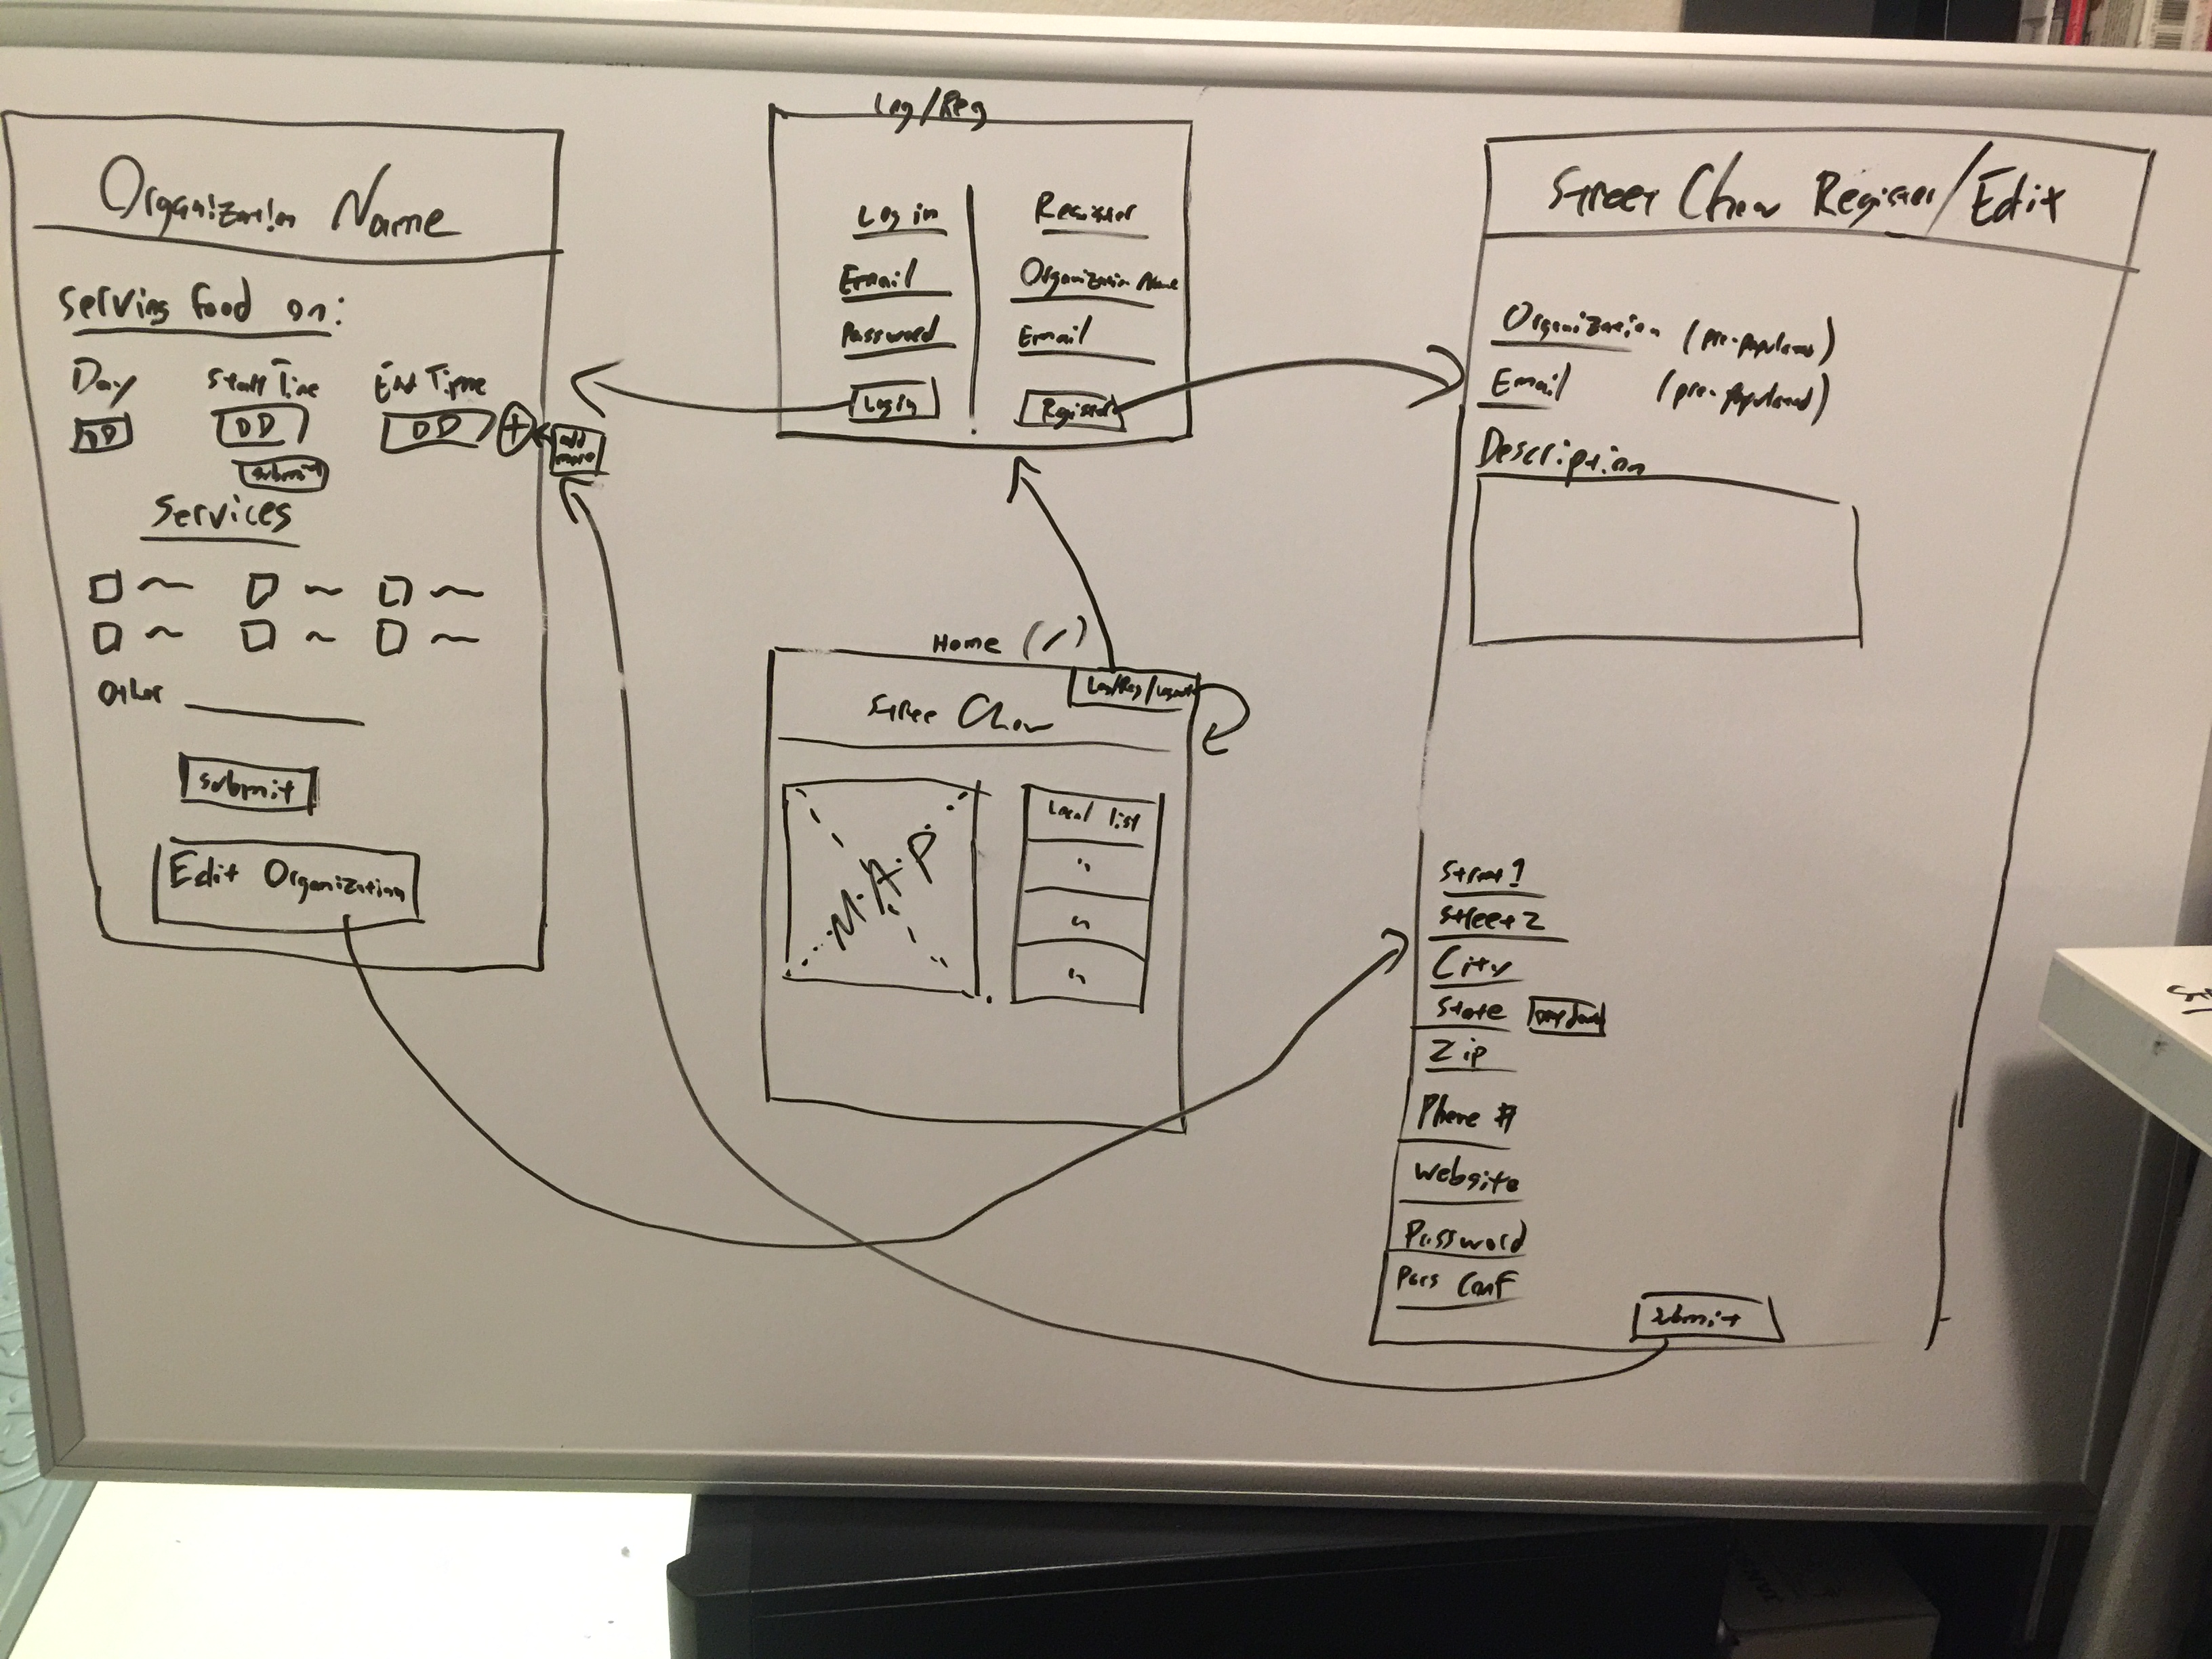 Organization Name
Serving food on:
Day Start Time End Time
DD DD DD + add more
submit
Services
Other
submit
Edit Organization
Log/Reg
Log in
Email
Password
Login
Register
Organization Name
Email
Register
Home (/)
Log/Reg/Logout
Stree Chow
M.A.P.
Local list
"
"
"
Street Chow Register/Edit
Organization (pre-populated)
Email (pre-populated)
Description
Street 1
Street 2
City
State
Zip
Phone #
Website
Password
Pass Conf
submit